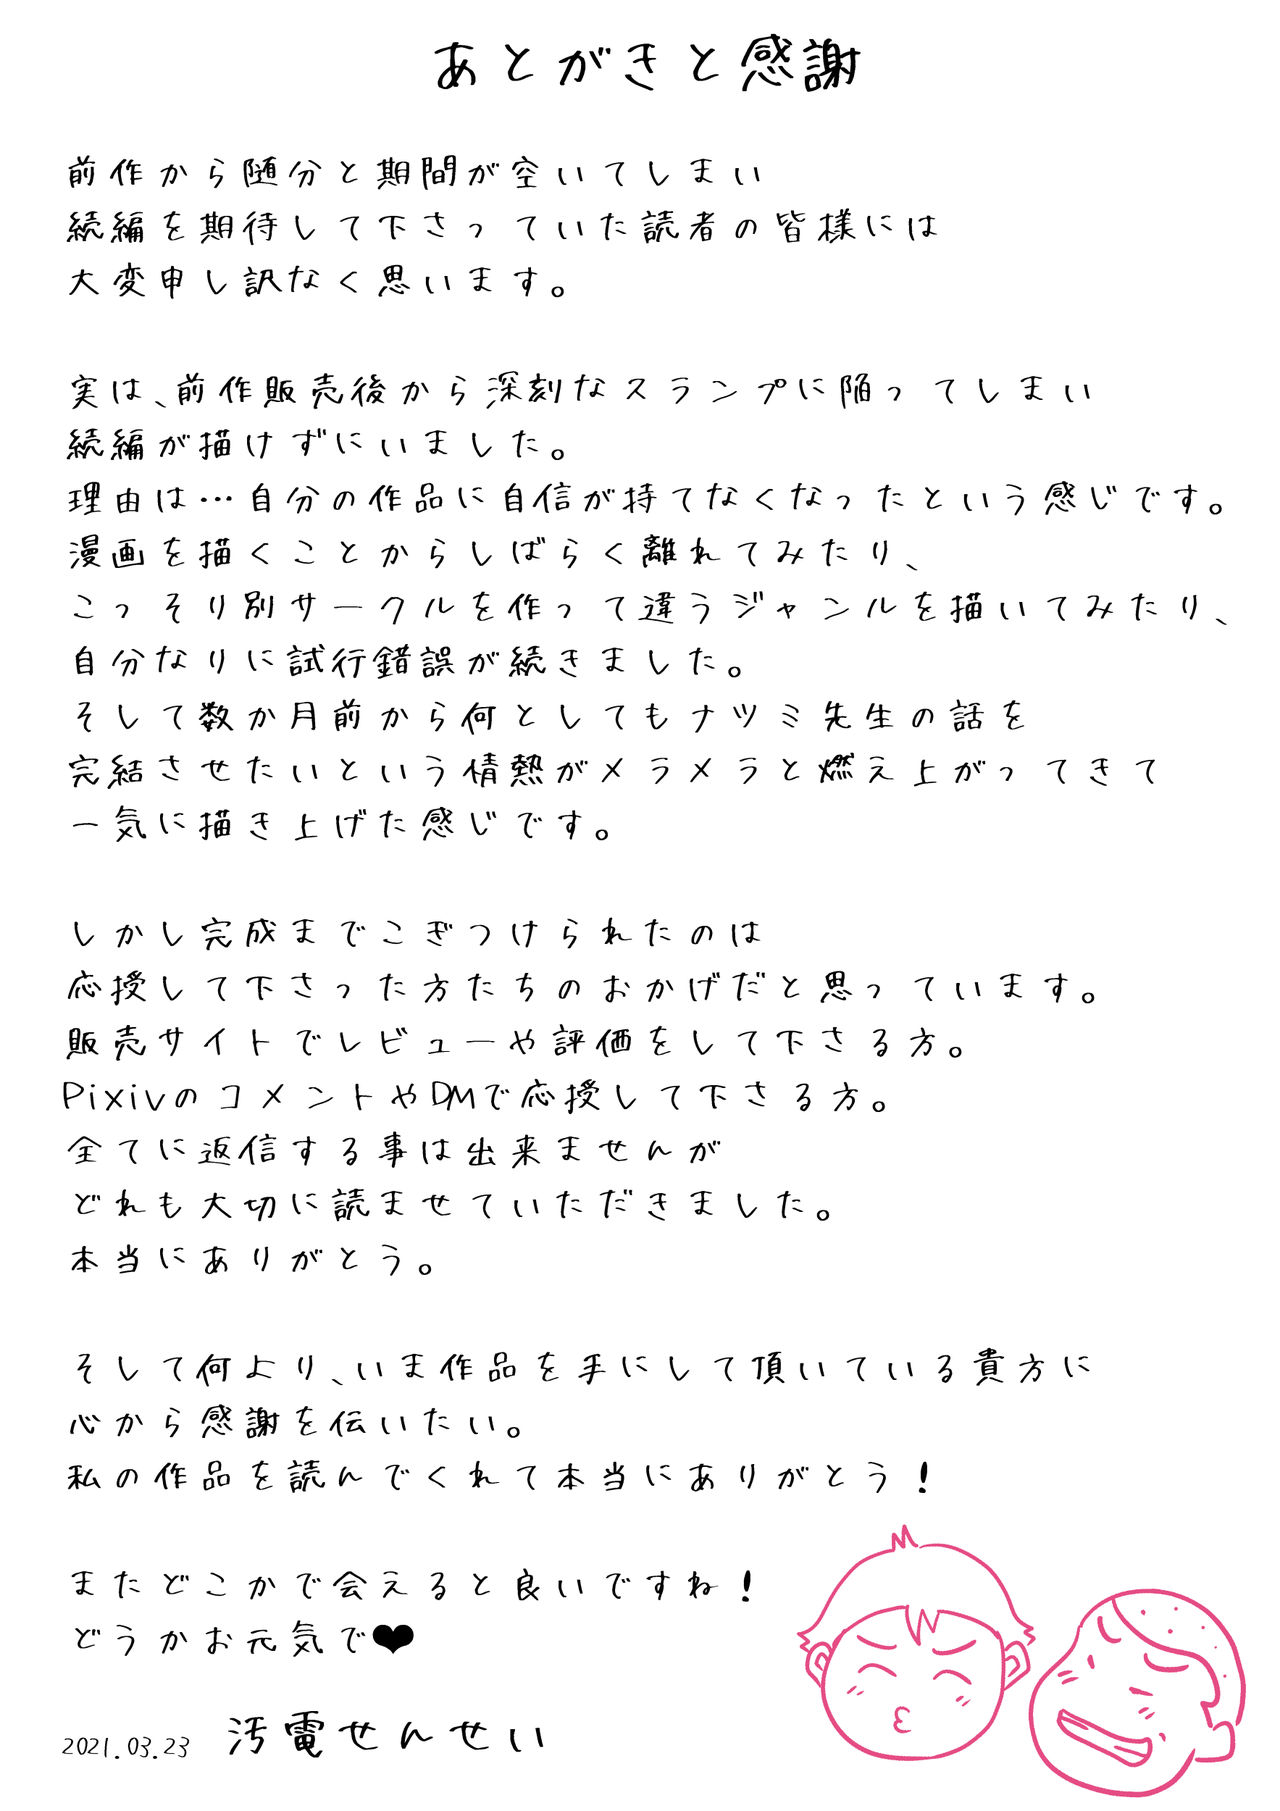 あとがきと感謝
前作から随分と期間が空いてしまい
続編を期待して下さっていた読者の皆様には
大変申し訳なく思います。
実は、前作販売後から深刻なスランプに陥ってしまい
続編が描けずにいました。
理由は…自分の作品に自信が持てなくなったという感じです。
漫画を描くことからしばらく離れてみたり、
こっそり別サークルを作って違うジャンルを描いてみたり、
自分なりに試行錯誤が続きました。
そして数か月前から何としてもナツミ先生の話を
完結させたいという情熱がメラメラと燃え上がってきて
一気に描き上げた感じです。
しかし完成までこぎつけられたのは
応援して下さった方たちのおかげだと思っています。
販売サイトでレビューや評価をして下さる方。
Pixivのコメントやdmで応援して下さる方。
全てに返信する事は出来ませんが
どれも大切に読ませていただきました。
本当にありがとう。
そして何より、いま作品を手にして頂いている貴方に
心から感謝を伝いたい。
私の作品を読んでくれて本当にありがとう！
またどこかで会えると良いですね！
どうかお元気で❤
2021.03.23 汚電せんせい